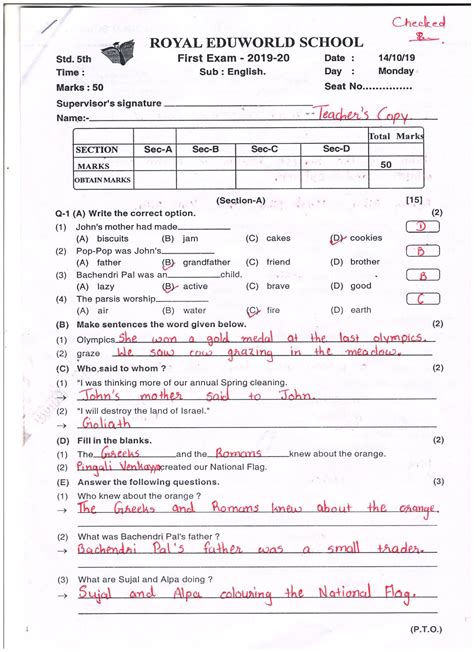 Checked
ROYAL EDUWORLD SCHOOL
Std. 5th First Exam - 2019-20 Date : 14/10/19
Time : Sub : English. Day : Monday
Marks : 50 Seat No...............
Supervisor's signature
Name:- Teacher's Copy
Total Marks
SECTION Sec-A Sec-B Sec-C Sec-D
MARKS 50
OBTAIN MARKS
(Section-A) [15]
Q-1 (A) Write the correct option. (2)
(1) John's mother had made D
(A) biscuits (B) jam (C) cakes (D) cookies
(2) Pop-Pop was John's B
(A) father (B) grandfather (C) friend (D) brother
(3) Bachendri Pal was an child. B
(A) lazy (B) active (C) brave (D) good
(4) The parsis worship C
(A) air (B) water (C) fire (D) earth
(B) Make sentences the word given below. (2)
(1) Olympics She won a gold medal at the last olympics.
(2) graze We saw cow grazing in the meadow.
(C) Who said to whom ? (2)
(1) "I was thinking more of our annual Spring cleaning.
→ John's mother said to John.
(2) "I will destroy the land of Israel."
→ Goliath
(D) Fill in the blanks. (2)
(1) The Greeks and the Romans knew about the orange.
(2) Pingali Venkayya created our National Flag.
(E) Answer the following questions. (3)
(1) Who knew about the orange ?
→ The Greeks and Romans knew about the orange.
(2) What was Bachendri Pal's father ?
→ Bachendri Pal's father was a small trader.
(3) What are Sujal and Alpa doing ?
→ Sujal and Alpa colouring the National Flag.
(P.T.O.)